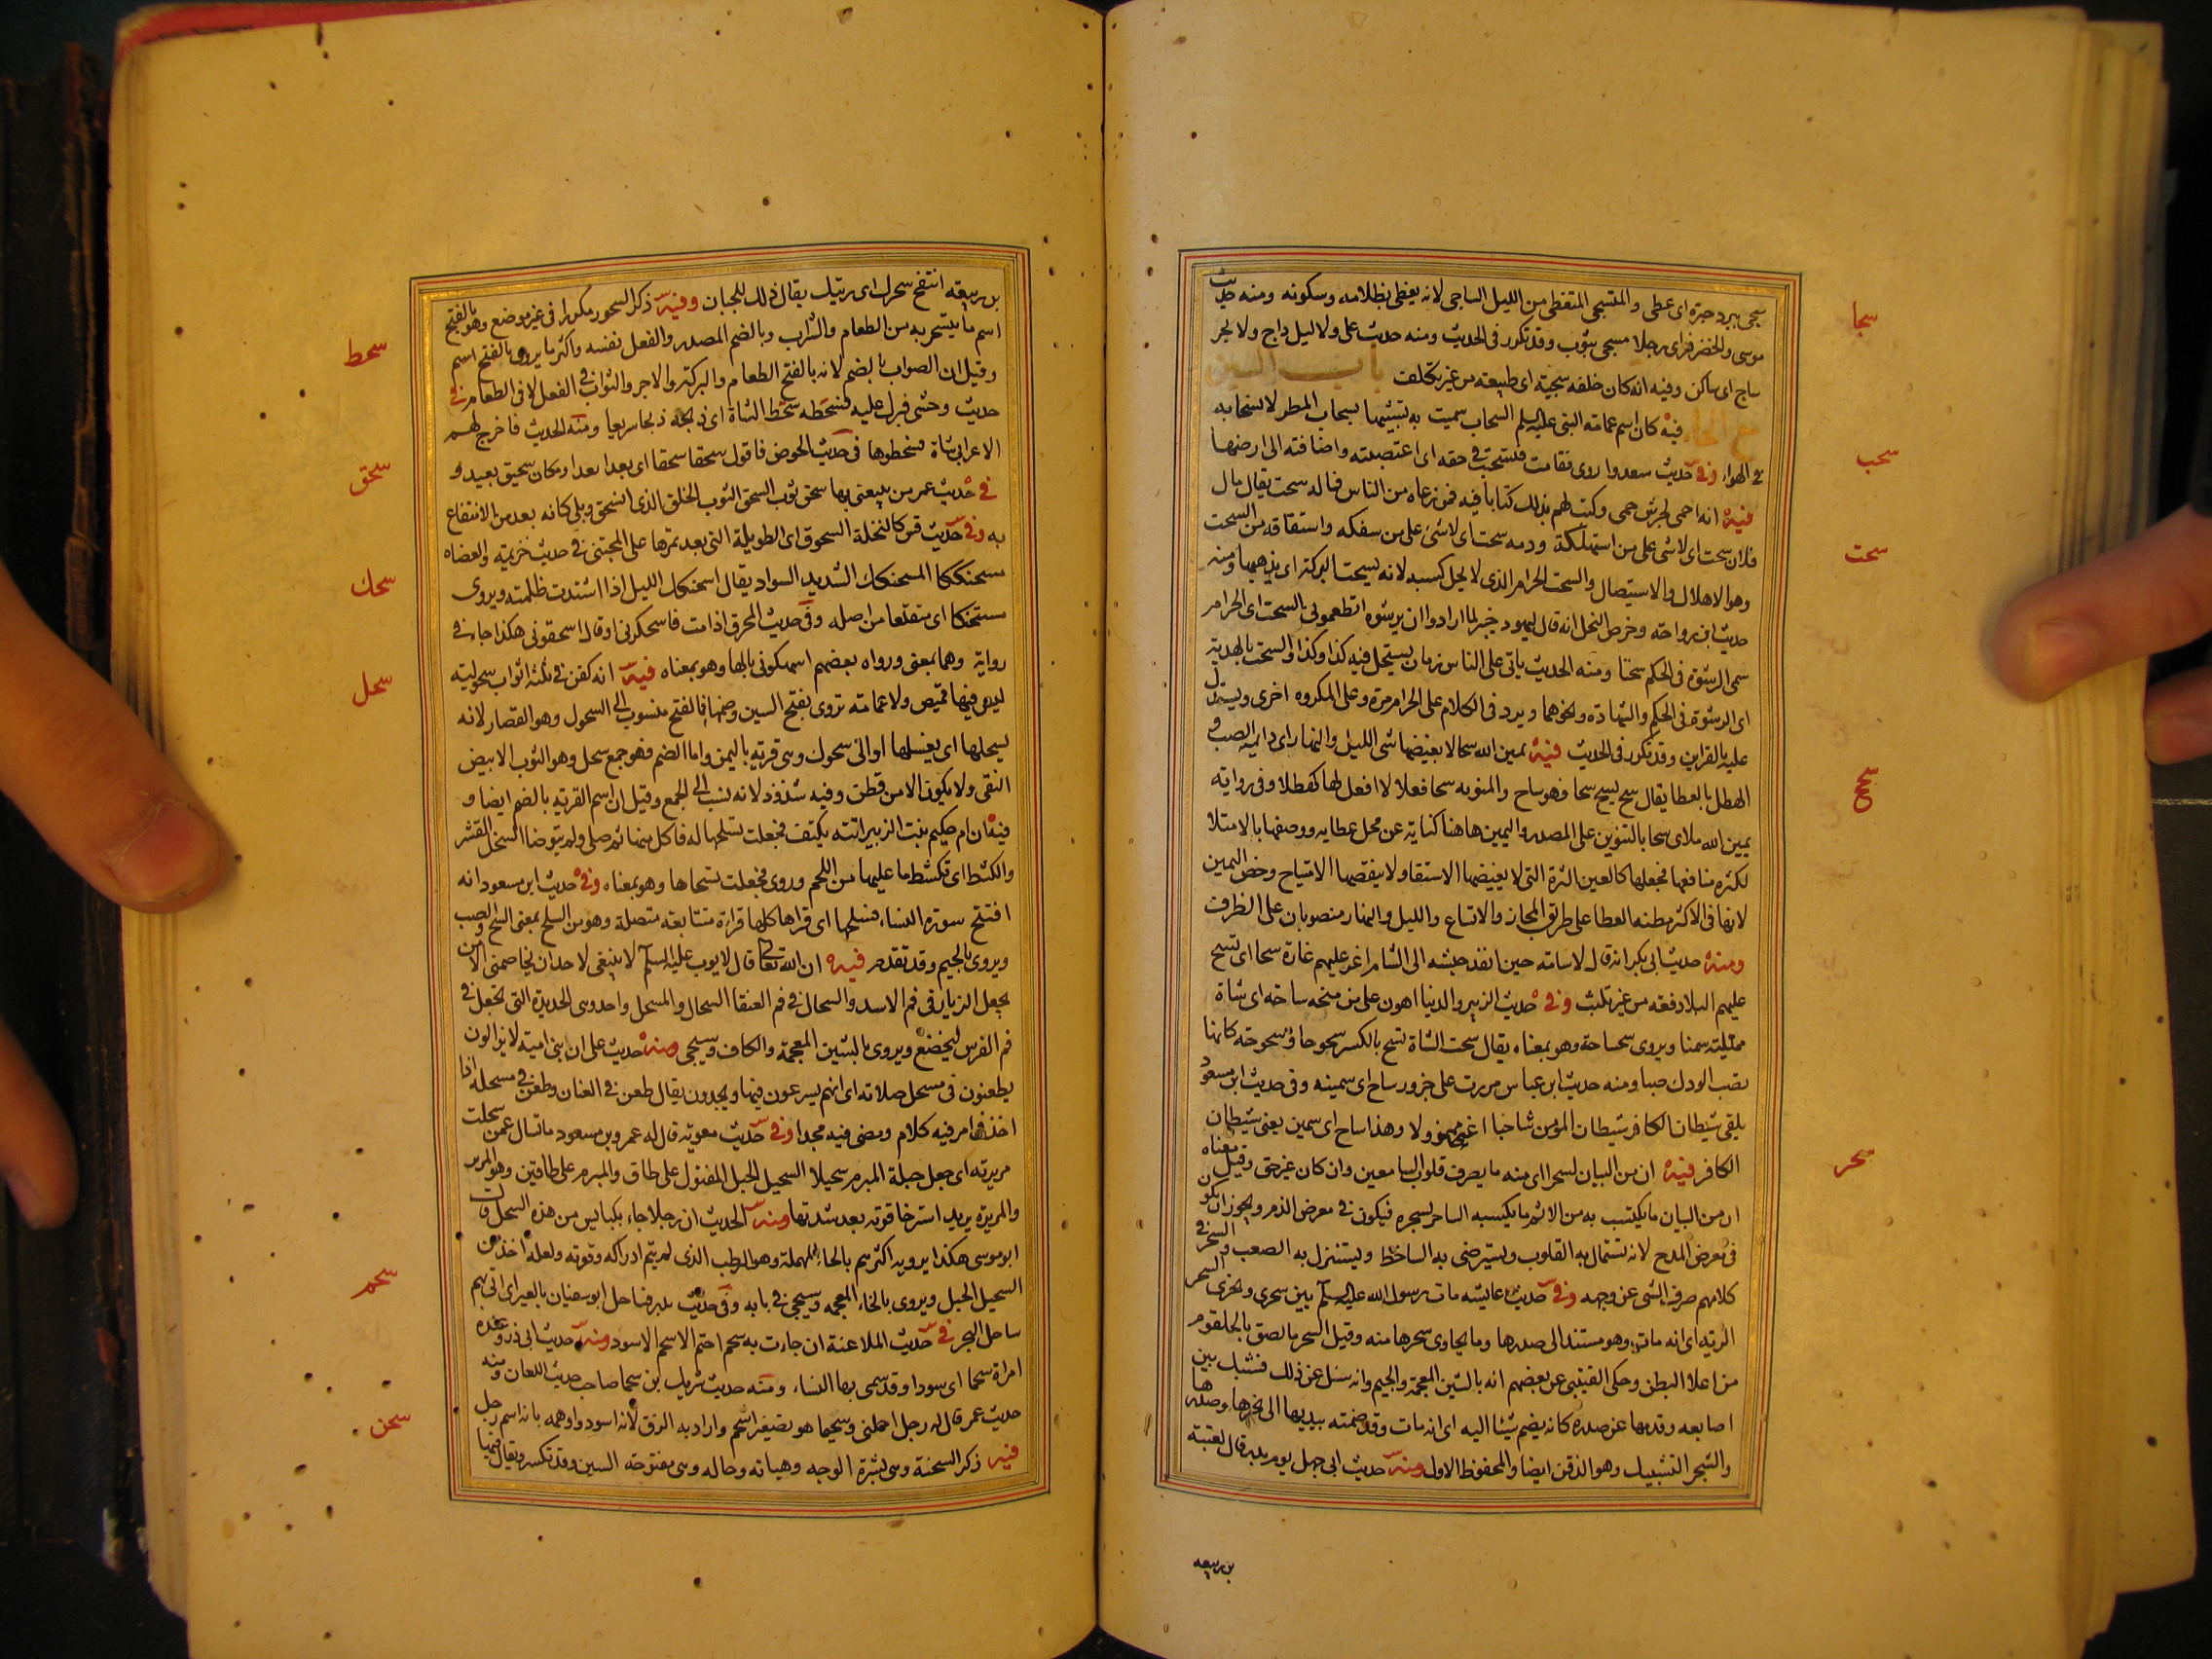 سجا
سجى ببرد حبرة اى غطى والمتسجى المتغطى من الليل الساجى لانه يغطى بظلامه وسكونه ومنه حديث
موسى والخضر فراى رجلا مسجى بثوب وقد تكرر فى الحديث ومنه حديث على ولا ليل داج ولا بحر
ساج اى ساكن وفيه انه كان خلقه سجية اى طبيعة من غير تكلف باب السين
سحب
مع الحاء فيه كان اسم عمامة النبى عليه السلم السحاب سميت به تشبيها بسحاب المطر لانسحابه
فى الهواء وفى حديث سعد واروى فقامت فتسحبت فى حقه اى اغتصبته واضافته الى ارضها
سحت
فيه انه احمى لجرش حمى وكتب لهم بذلك كتابا فيه فمن رعاه من الناس فماله سحت يقال مال
فلان سحت اى لاشى على من استهلكه ودمه سحت اى لاشى على من سفكه واشتقاقه من السحت
وهو الاهلاك والاستيصال والسحت الحرام الذى لا يحل كسبه لانه يسحت البركة اى يذهبها ومنه
حديث ابن رواحة وخرص النخل انه قال ليهود خيبر لما ارادوا ان يرشوه اتطعمونى السحت اى الحرام
سمى الرشوة فى الحكم سحتا ومنه الحديث ياتى على الناس زمان يستحل فيه كذا وكذا والسحت بالهدية
اى الرشوة فى الحكم والشهادة ونحوهما ويرد فى الكلام على الحرام مرة وعلى المكروه اخرى ويستدل
سحح
عليه بالقراين وقد تكرر فى الحديث فيه يمين الله سحا لا يغيضها شى الليل والنهار اى دايمة الصب و
الهطل بالعطا يقال سح يسح سحا فهو ساح والمونثه سحا فعلا لا افعل لها كهطلا وفى رواية
يمين الله ملاى سحا بالتنوين على المصدر واليمين هاهنا كناية عن محل عطايه ووصفها بالامتلا
لكثرة منافعها فجعلها كالعين الثرة التى لا يغيضها الاستقا ولا ينقصها الامتياح وخص اليمين
لانها فى الاكثر مظنه العطا على طريق المجاز والاتساع والليل والنهار منصوبان على الظرف
ومنه حديث ابى بكر انه قال لاسامة حين انفذ جيشه الى الشام اغر عليهم غارة سحا اى تسح
عليهم البلا دفعة من غير تلبث وفى حديث الزبير والدنيا اهون على من منحة ساحة اى شاة
ممتلية سمنا ويروى سحساحة وهو بمعناه يقال سحت الشاة تسح بالكسر سحوحا وسحوحة كانها
تصب الودك صبا ومنه حديث ابن عباس مررت على جزور ساح اى سمينه وفى حديث ابن مسعود
يلقى شيطان الكافر شيطان المؤمن شاحبا اغبر مهزولا وهذا ساح اى سمين يعنى شيطان
سحر
الكافر فيه ان من البيان لسحرا اى منه ما يصرف قلوب السامعين وان كان غير حق وقيل معناه
ان من البيان ما يكتسب به من الاثم ما يكتسبه الساحر بسحره فيكون فى معرض الذم ويجوز ان يكون
فى معرض المدح لانه تستمال به القلوب ويسترضى به الساخط ويستنزل به الصعب والسحر فى
كلامهم صرف الشى عن وجهه وفى حديث عايشه مات رسول الله عليه السلم بين سحرى ونحرى السحر
الرية اى انه مات وهو مستند الى صدرها وما يحاذى سحرها منه وقيل السحر ما لصق بالحلقوم
من اعلا البطن وحكى القتيبى عن بعضهم انه بالشين المعجمة والجيم وانه سئل عن ذلك فشبك بين
اصابعه وقدمها عن صدره كانه يضم شيئا اليه اى انه مات وقد ضمته بيديها الى نحرها وصدرها
والشجر التشبيك وهو الذقن ايضا والمحفوظ الاول ومنه حديث ابى جهل يوم بدر قال لعتبة
بن ربيعه
بن ربيعه انتفخ سحرك اى ريتك يقال ذلك للجبان وفيه ذكر السحور مكررا فى غير موضع وهو بالفتح
اسم ما يتسحر به من الطعام والشراب وبالضم المصدر والفعل نفسه واكثر ما يروى بالفتح اسم
سحط
وقيل ان الصواب بالضم لانه بالفتح الطعام والبركة والاجر والثواب فى الفعل لا فى الطعام فى
حديث وحشى فبرك عليه فسحطه سحط الشاة اى ذبحه ذبحا سريعا ومنه الحديث فاخرج لهم
سحق
الاعرابى شاة فسحطوها فى حديث الحوض فاقول سحقا سحقا اى بعدا بعدا ومكان سحيق بعيد و
فى حديث عمر من يبيعنى بها سحق ثوب السحق الثوب الخلق الذى انسحق وبلى كانه بعد من الانتفاع
به وفى حديث قس كالنخلة السحوق اى الطويلة التى بعد ثمرها على المجتنى فى حديث خزيمة والعضاه
سحك
مسحنككا المسحنكك الشديد السواد يقال اسحنكك الليل اذا اشتدت ظلمته ويروى
مستحنكا اى منقلعا من اصله وفى حديث المحرق اذا مت فاسحكونى او قال اسحقونى هكذا جاء فى
سحل
رواية وهما بمعنى ورواه بعضهم اسهكونى بالها وهو بمعناه فيه انه كفن فى ثلثة اثواب سحولية
ليس فيها قميص ولا عمامة تروى بفتح السين وضمها فالفتح منسوب الى السحول وهو القصار لانه
يسحلها اى يغسلها او الى سحول وهى قرية باليمن واما الضم فهو جمع سحل وهو الثوب الابيض
النقى ولا يكون الا من قطن وفيه شذوذ لانه نسب الى الجمع وقيل ان اسم القرية بالضم ايضا و
فيه ان ام حكيم بنت الزبير اتته بكتف فجعلت تسحلها له فاكل منها ثم صلى ولم يتوضا السحل القشر
والكشط اى تكشط ما عليها من اللحم وروى فجعلت تسحاها وهو بمعناه وفى حديث ابن مسعود انه
افتتح سورة النساء فسحلها اى قراها كلها قراءة متتابعة متصلة وهو من السحل بمعنى السح والصب
ويروى بالجيم وقد تقدم فيه ان الله تعالى قال لايوب عليه السلم لا ينبغى لاحد ان يخاصمنى الا من
يجعل الزيار فى فم الاسد والسحال فى فم العنقا السحال والمسحل واحد وهى الحديدة التى تجعل فى
فم الفرس ليخضع ويروى بالشين المعجمة والكاف وسيجى ومنه حديث على ان بنى امية لا يزالون
يطعنون فى مسحل ضلالة اى انهم يسرعون فيها ويجدون يقال طعن فى العنان وطعن فى مسحله اذا
اخذ فى امر فيه كلام ومضى فيه مجدا وفى حديث معوية قال له عمرو بن مسعود ما تسال عمن سحلت
مريرته اى جعل حبله المبرم سحيلا السحيل الحبل المفتول على طاق والمبرم على طاقين وهو المرير
والمريرة يريد استرخا قوته بعد شدتها ومنه الحديث ان رجلا جاء بكبايس من هذه السحل قال
ابو موسى هكذا يرويه اكثرهم بالحاء المهملة وهو الرطب الذى لم يتم ادراكه وقوته ولعله اخذ من
سحم
السحيل الحبل ويروى بالخاء المعجمه وسيجى فى بابه وفى حديث بدر فساحل ابو سفيان بالعير اى اتى بهم
ساحل البحر فى حديث الملاعنة ان جاءت به سحم احتم الاسحم الاسود ومنه حديث ابى ذر وعنده
امراة سحما اى سودا وقد سمى بها النساء ومنه حديث شريك بن سحما صاحب حديث اللعان ومنه
سحن
حديث عمر قال له رجل احملنى وسحيما هو تصغير اسحم واراد به الزق لانه اسود واوهمه بانه اسم رجل
فيه ذكر السحنة وهى بشرة الوجه وهياته وحاله وهى مفتوحة السين وقد تكسر ويقال فيها